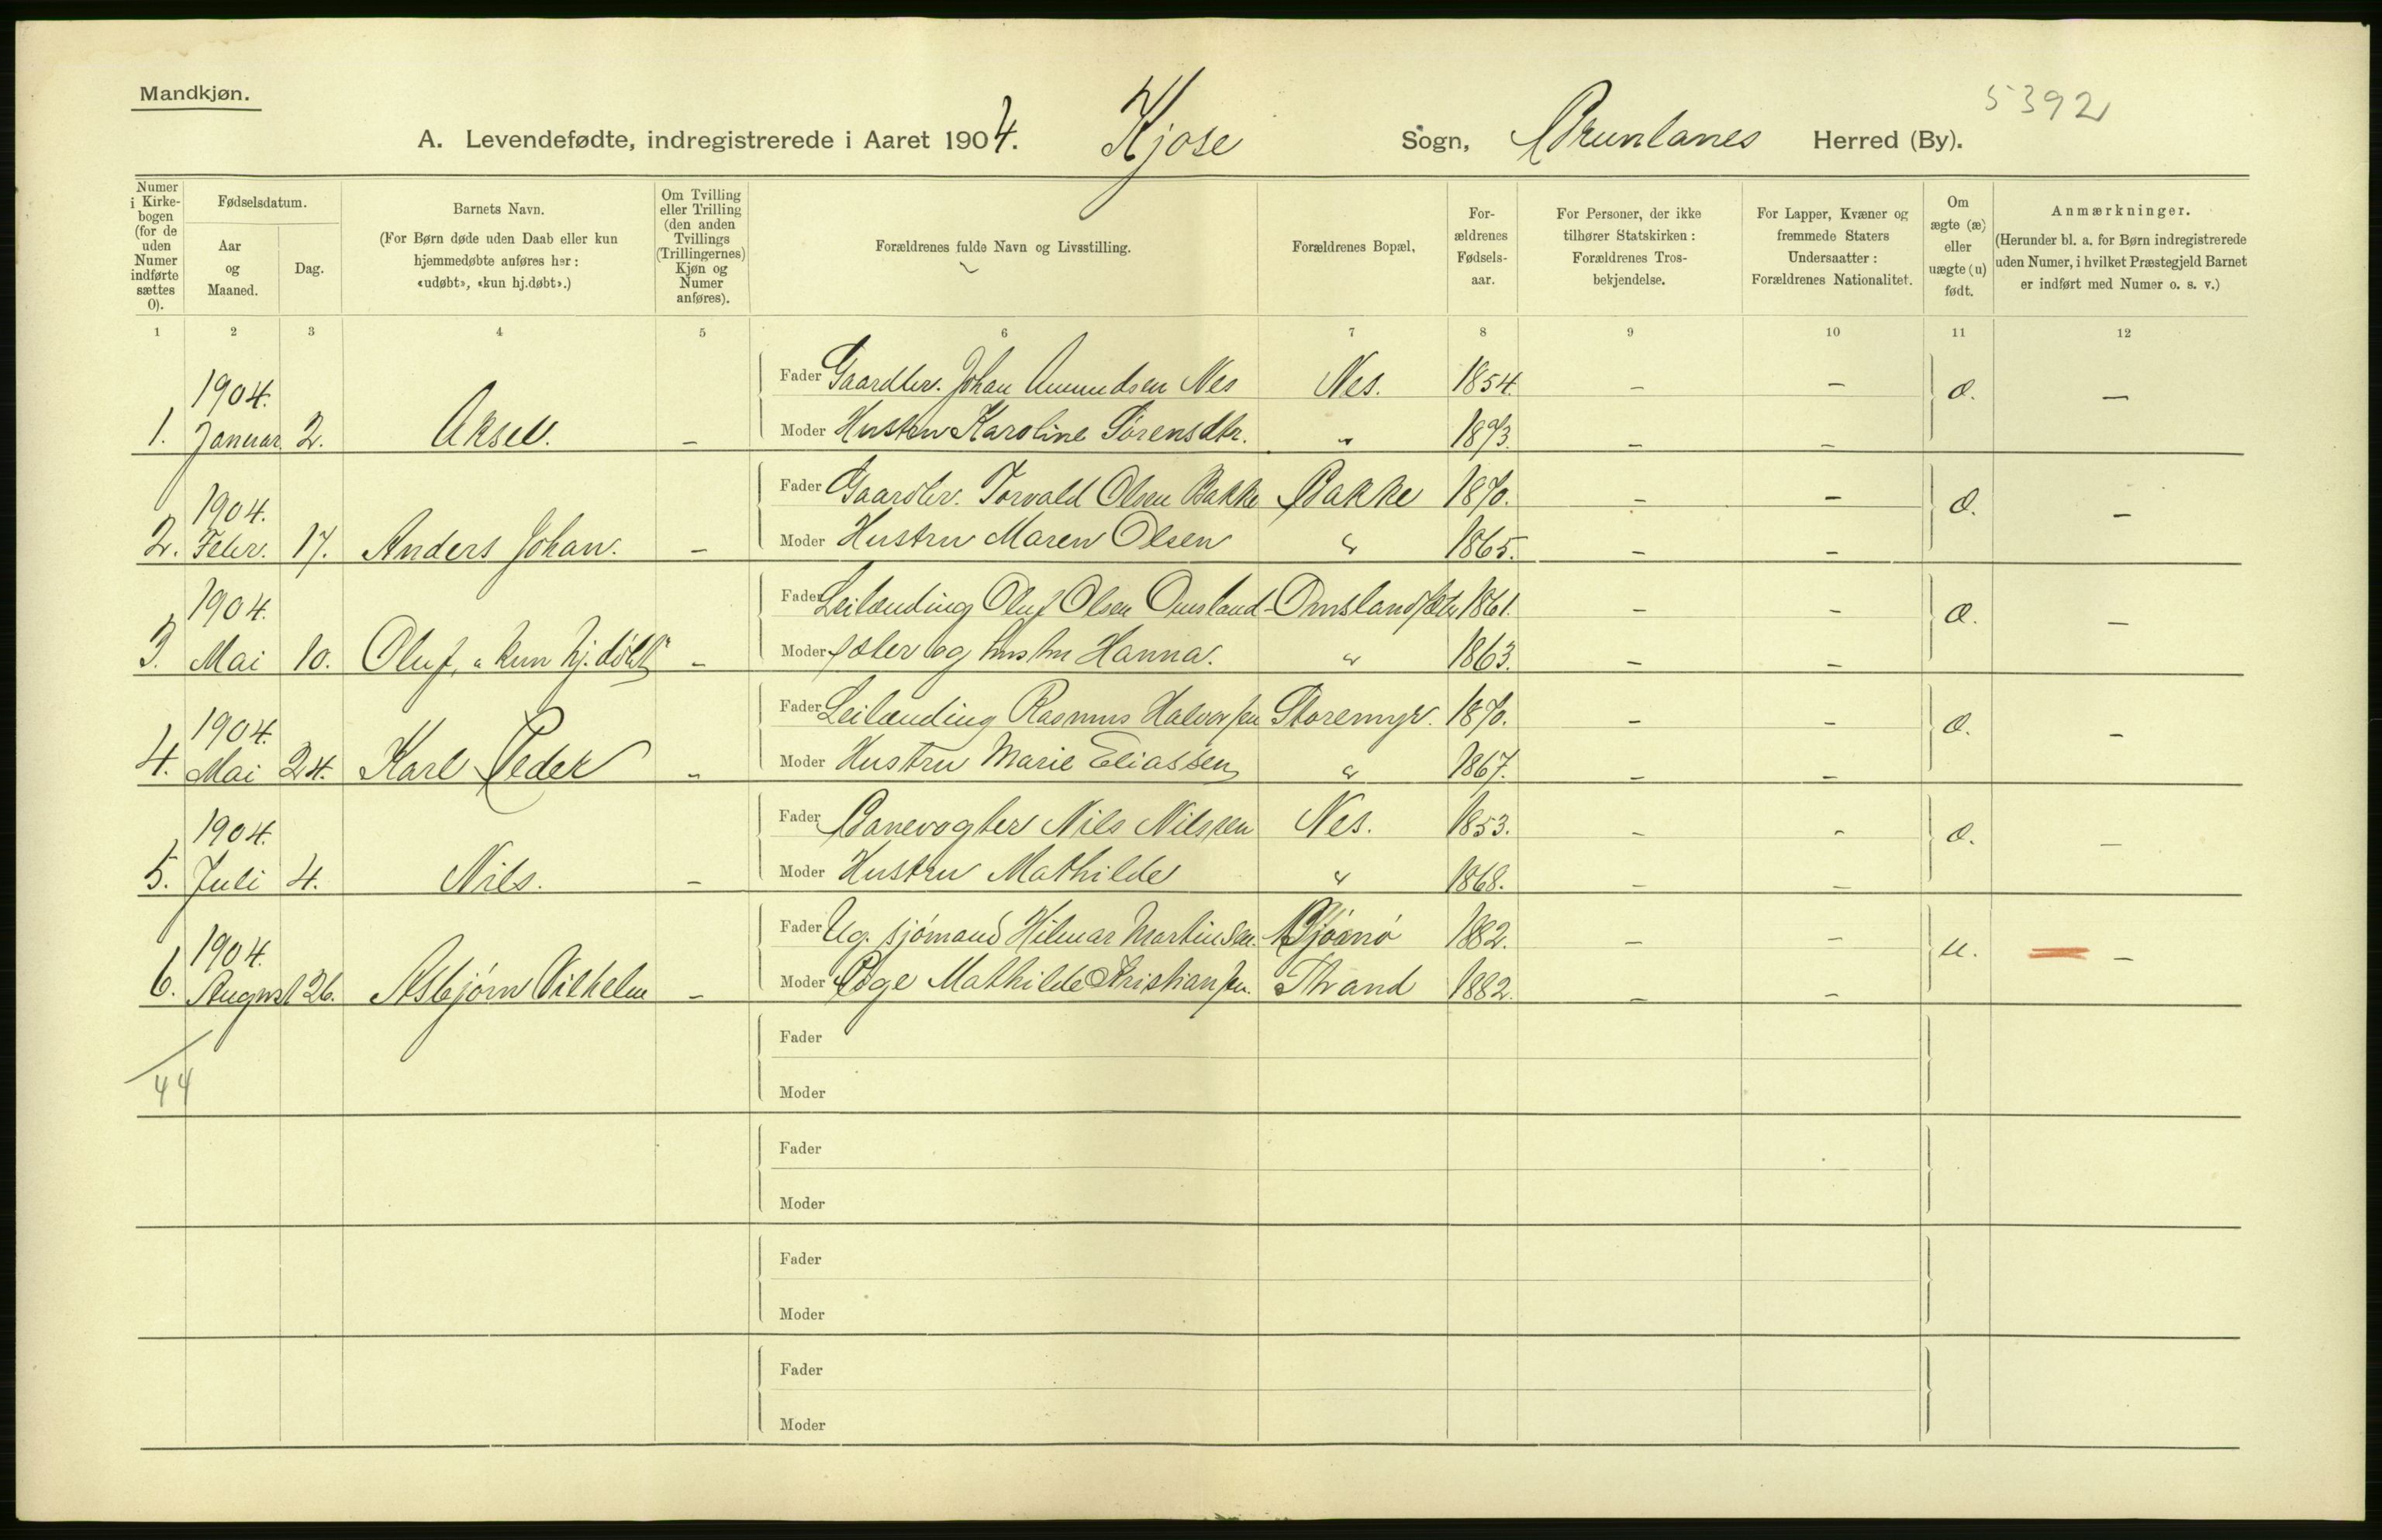 Mandkjøn.
5392
A. Levendefødte, indregistrerede i Aaret 1904. Kjose Sogn, Brunlanes Herred (By).
Numer i Kirkebogen (for de uden Numer indførte sættes 0).
Fødselsdatum.
Aar og Maaned.
Dag.
Barnets Navn.
(For Børn døde uden Daab eller kun hjemmedøbte anføres her: «udøbt», «kun hj.døbt».)
Om Tvilling eller Trilling (den anden Tvillings (Trillingernes) Kjøn og Numer anføres).
Forældrenes fulde Navn og Livsstilling.
Forældrenes Bopæl,
Forældrenes Fødselsaar.
For Personer, der ikke tilhører Statskirken: Forældrenes Trosbekjendelse.
For Lapper, Kvæner og fremmede Staters Undersaatter: Forældrenes Nationalitet.
Om ægte (æ) eller uægte (u) født.
Anmærkninger.
(Herunder bl. a. for Børn indregistrerede uden Numer, i hvilket Præstegjeld Barnet er indført med Numer o. s. v.)
1 2 3 4 5 6 7 8 9 10 11 12
1904. Fader Gaardbr. Johan Amundsen Nes Nes. 1854. — — æ. —
1. Januar 2. Aksel. — Moder Hustru Karoline Sørensdtr. " 1873. — —
1904. Fader Gaardbr. Torvald Olsen Bakke Bakke 1870. — — æ. —
2. Febr. 17. Anders Johan. — Moder Hustru Maren Olsen " 1865. — —
1904. Fader Leilænding Oluf Olsen Omsland- Omsland 1861. — — æ. —
3. Mai 10. Oluf, "kun hj. døbt" — Moder sæter og hustru Hanna. " 1863. — —
1904. Fader Leilænding Rasmus Halvorsen Storemyr. 1870. — — æ. —
4. Mai 24. Karl Peder — Moder Hustru Marie Eliassen " 1867. — —
1904. Fader Banevogter Nils Nilssen Nes. 1853. — — æ. —
5. Juli 4. Nils. — Moder Hustru Mathilde " 1868. — —
1904. Fader Ug. sjömand Hilmar Martinsen. 1882. — — u. —
6. August 26. Asbjørn Vilhelm — Moder Pige Mathilde Kristiansen. 1882. — —
Fader
44 Moder
Fader
Moder
Fader
Moder
Fader
Moder